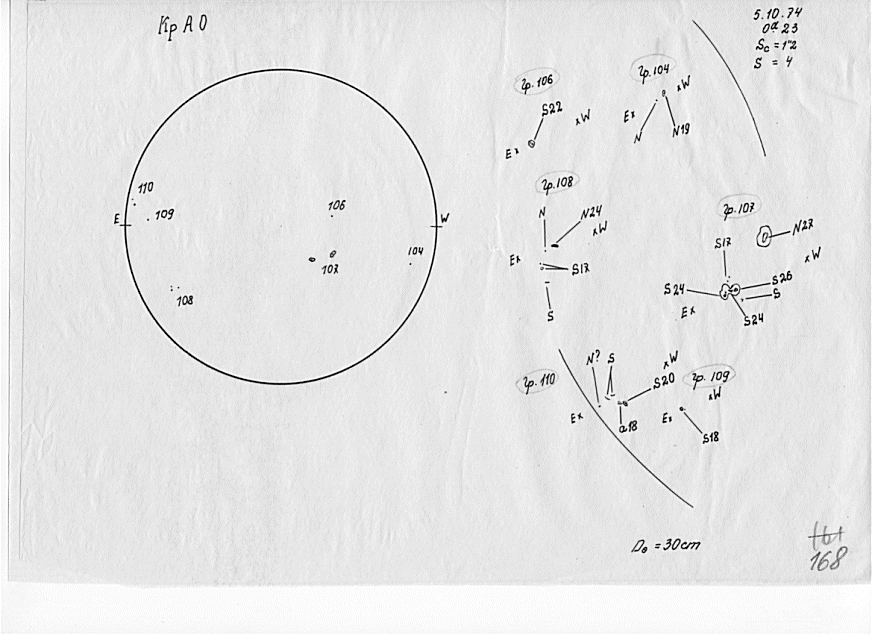 Кр АО
5.10.74
0ᵈ23
Sc = 1"2
S = 4
гр. 106
S22
xW
Ex
гр. 104
xW
Ex
N
N19
110
109
E
106
W
104
107
108
гр. 108
N
N24
xW
Ex
S17
S
гр. 107
N27
S17
xW
S26
S24
S
Ex
S24
гр. 110
N?
S
xW
S20
Ex
a18
гр. 109
xW
Ex
S18
D₀ = 30cm
168